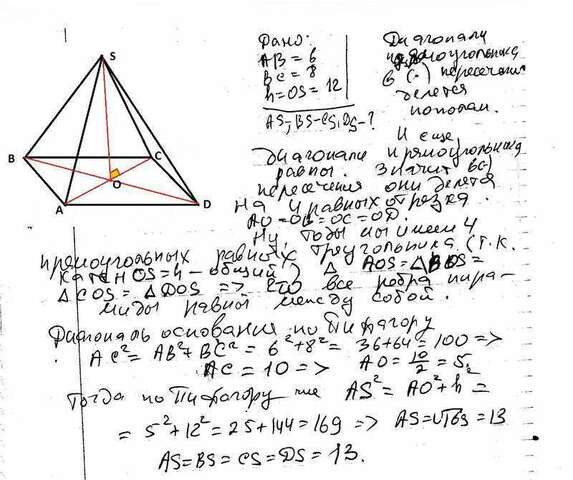 S
B
C
O
A
D
Дано:
AB = 6
BC = 8
h=OS = 12
AS, BS-CS, DS-?
Диагонали
прямоугольника
в (·) пересечения
делятся
пополам.
И еще
диагонали прямоугольника
равны. Значит в(·)
пересечения они делятся
на 4 равных отрезка.
AO=OB=OC=OD.
Ну, тоды мы имеем 4
прямоугольных равных треугольника (т.к.
катет OS=h - общий) Δ AOS = Δ BOS =
Δ COS = Δ DOS => это все ребра пира-
миды равны между собой.
Диагональ основания по Пифагору
AC² = AB² + BC² = 6² + 8² = 36+64 = 100 =>
AC = 10 => AO = 10/2 = 5,
Тогда по Пифагору же AS² = AO² + h =
= 5² + 12² = 25 + 144 = 169 => AS = √169 = 13
AS = BS = CS = DS = 13.